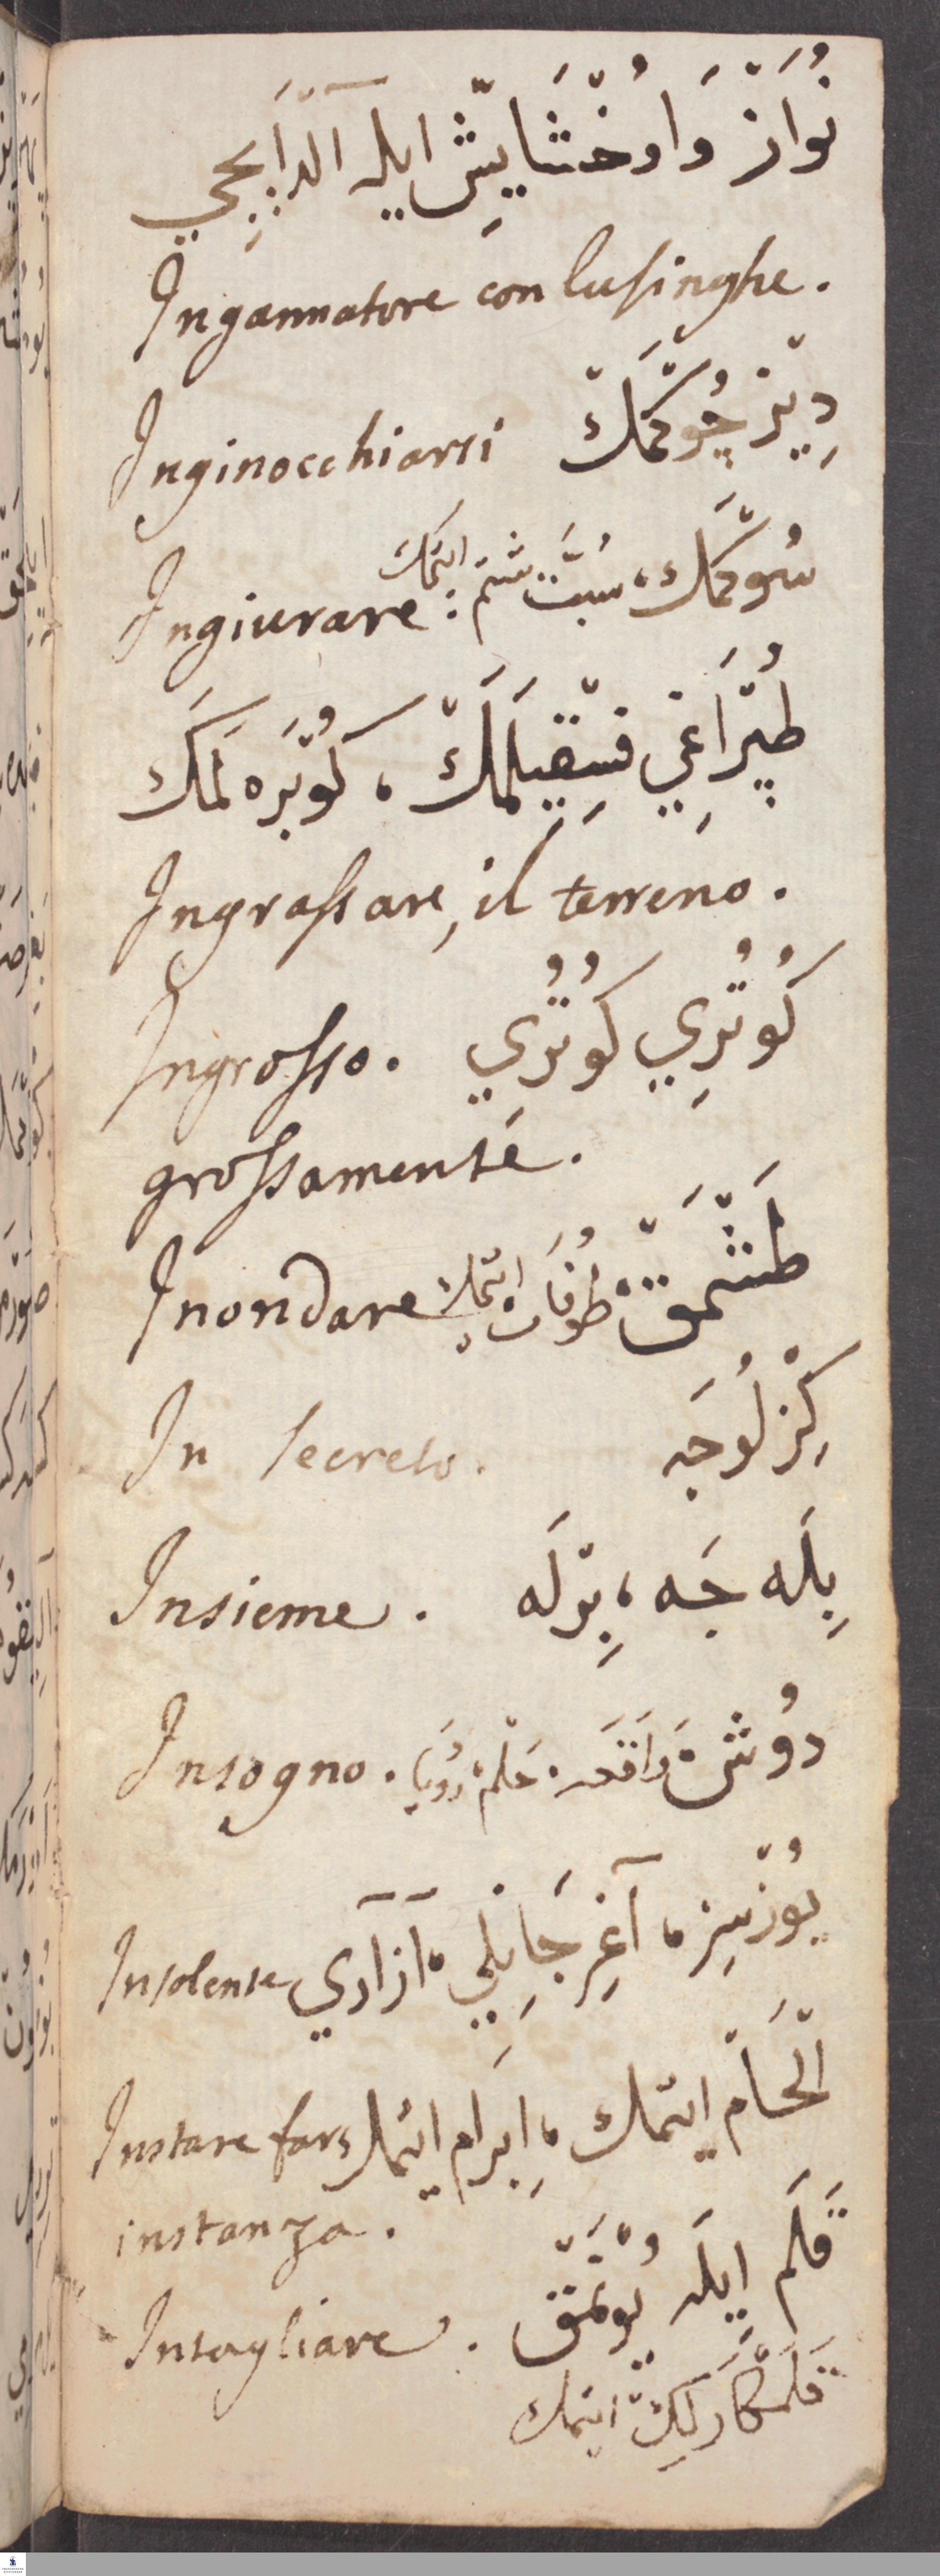 نُوَازْ وَاوُخْشَايِشْ ايله آلدَايِجي
Ingannatore con lusinghe.
Inginocchiarsi دِيزْ چُوكْمَكْ
Ingiurare : سُوكْمَكْ، سَبّ، شتم ايتمك
طُپْرَاغِي فِسْقِيلَمَكْ، كُوبْرَه لَمَكَ
Ingrassare, il terreno.
Ingrosso. كُوتُرِي كُوتُرِي
grossamente.
Inondare طَشْمَقْ، طُوفَان ايتمك
In secreto. كِزْلُوجَه
Insieme. بِلَه جَه، بِرْلَه
Insogno. دُوش، وَاقَعَه، حُلْم، رُويَا
Insolente يُوزْسِزْ، آغِرْجَانِلِي، آزَارِي
Instare fars اِلْحَاحْ ايتمك، اِبرام ايتمك
instanza.
Intagliare. قَلَم ايلَه يُونْمَقْ
قَلَمْكَارْلِكْ ايتمك